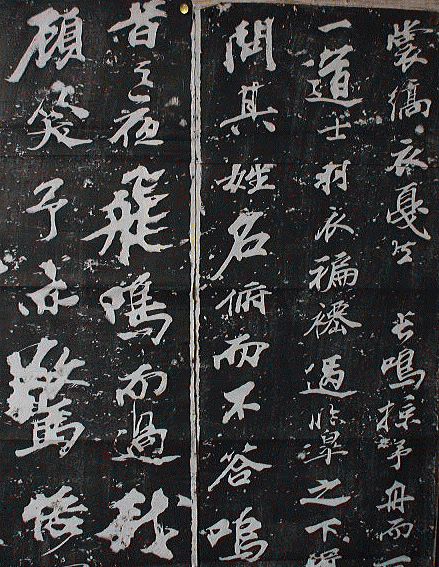 裳縞衣戛然長鳴掠予舟而
一道士羽衣蹁躚過臨皋之下揖
問其姓名俯而不答嗚
昔之夜飛鳴而過我
顧笑予亦驚悟